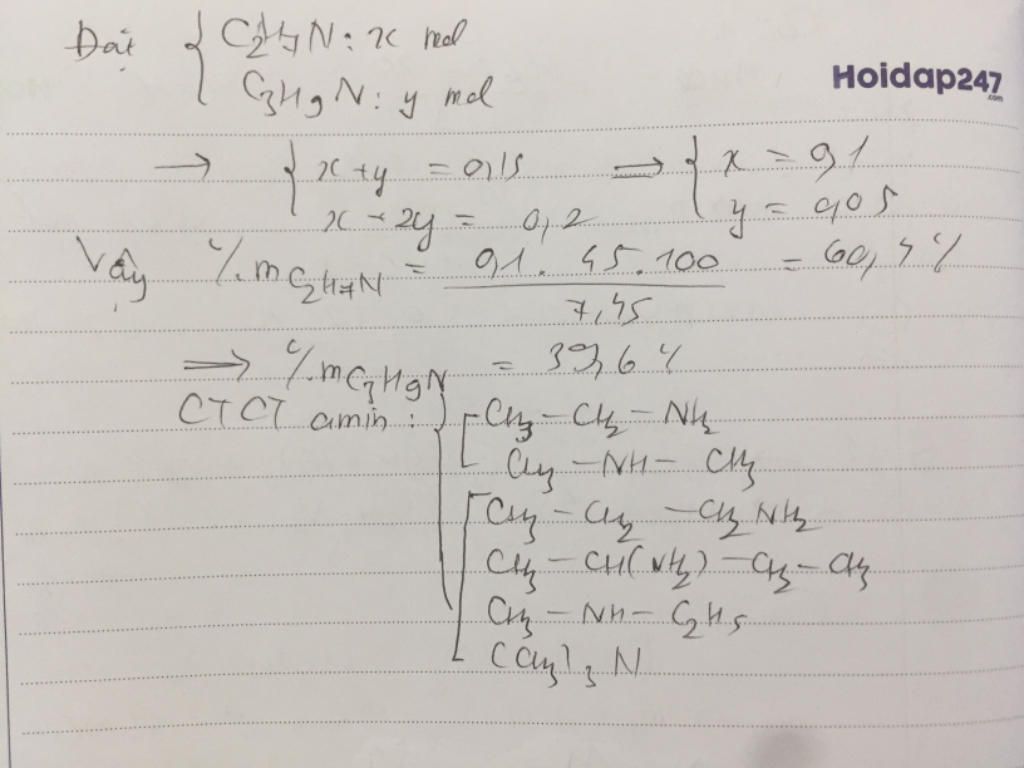 Đặt { C2H7N: x mol
C3H9N: y mol
Hoidap247
.com
→ { x + y = 0,15 ⇒ { x = 0,1
x + 2y = 0,2 y = 0,05
Vậy %mC2H7N = 0,1 . 45 . 100 / 7,45 = 60,4 %
⇒ %mC3H9N = 39,6 %
CTCT amin : { [ CH3 – CH2 – NH2
CH3 – NH – CH3
[ CH3 – CH2 – CH2 NH2
CH3 – CH(NH2) – CH2 – CH3
CH3 – NH – C2H5
(CH3)3 N